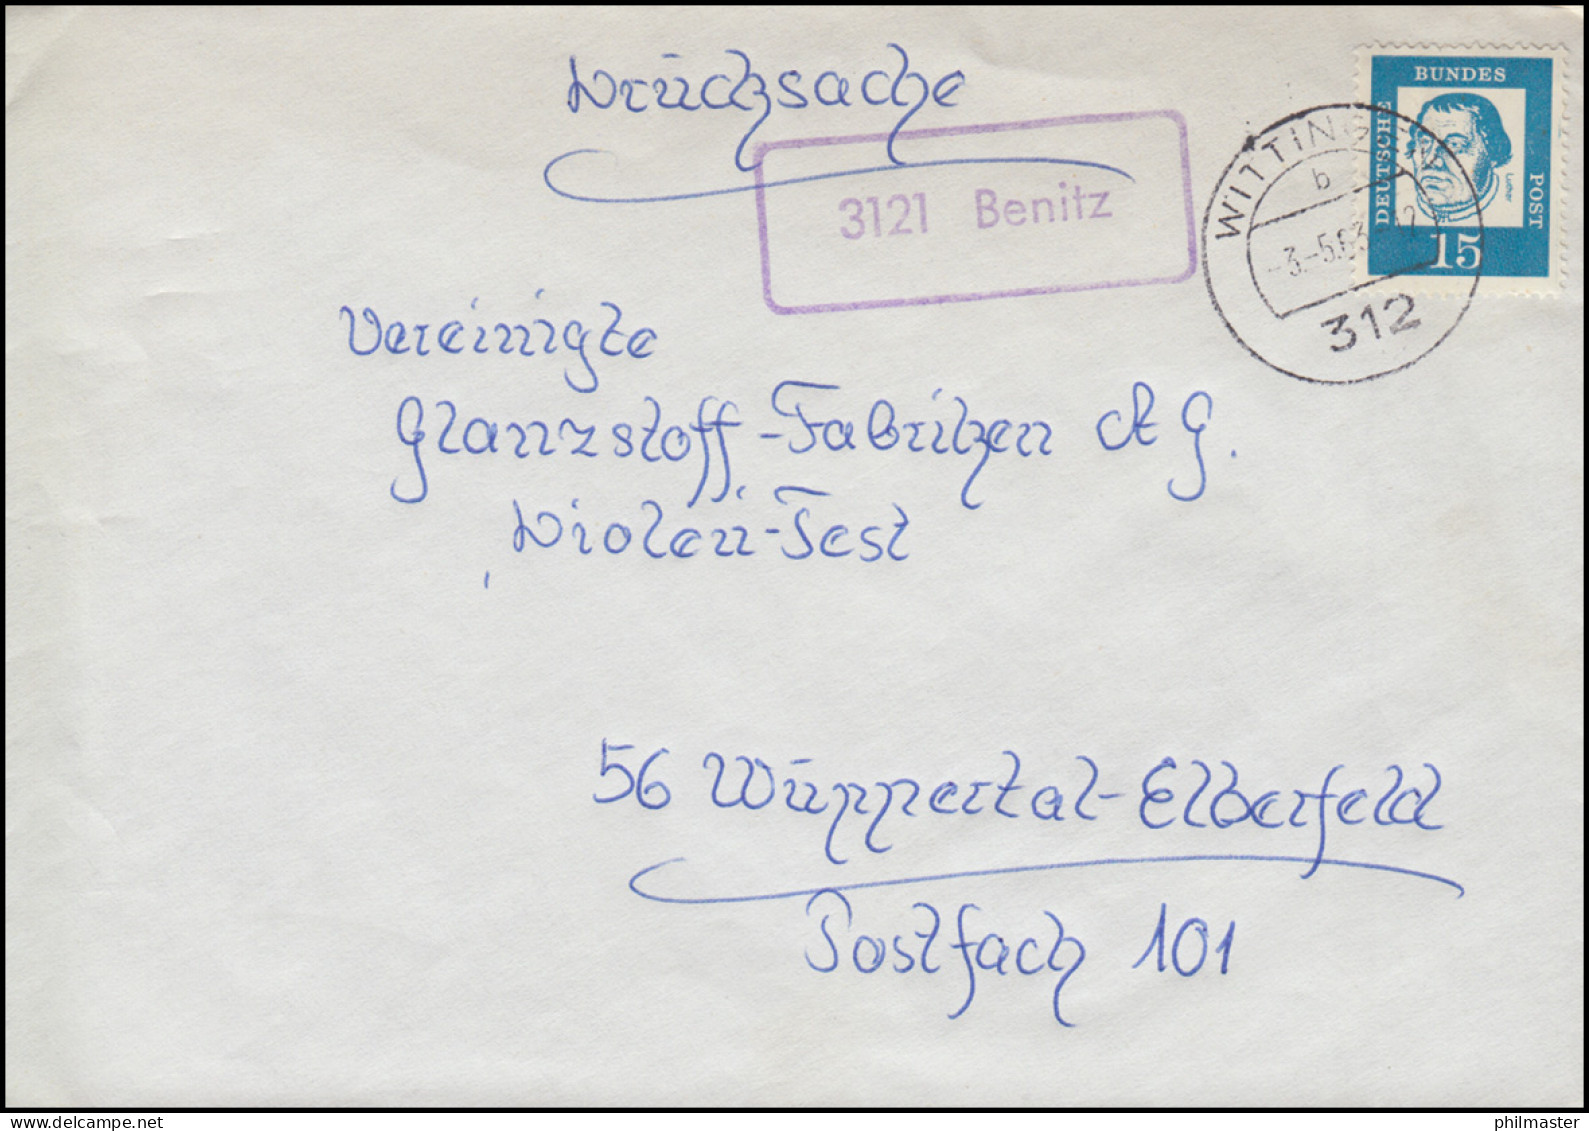 Drucksache
BUNDES
DEUTSCHE
POST
Luther
15
3121 Benitz
WITTINGEN
b
-3.-5.63.-12
312
Vereinigte
Glanzstoff-Fabriken AG.
Diolen-Test
56 Wuppertal-Elberfeld
Postfach 101
philmaster